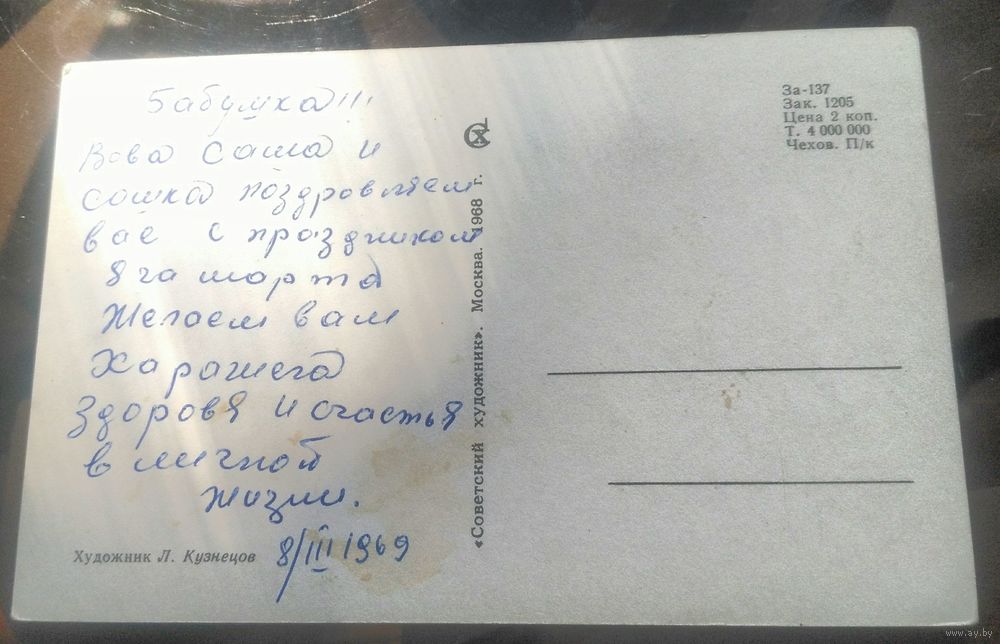 Бабушка!!!
Вова Саша и
сашка поздровляем
вас с праздником
8 га марта
Желаем вам
Харашега
Здоровя и счастья
в личной
жизни.
8/III 1969
Художник Л. Кузнецов
«Советский художник». Москва. 1968 г.
За-137
Зак. 1205
Цена 2 коп.
Т. 4 000 000
Чехов. П/к
www.ay.by